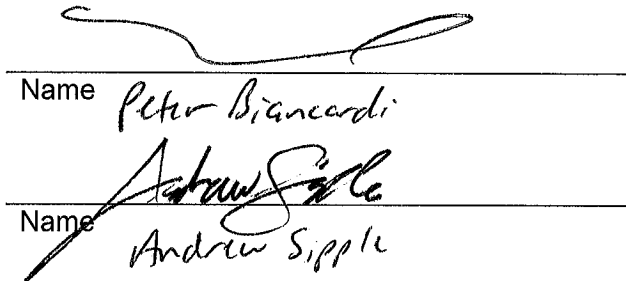 Name Peter Biancardi
Andrew Sipple
Name
Andrew Sipple